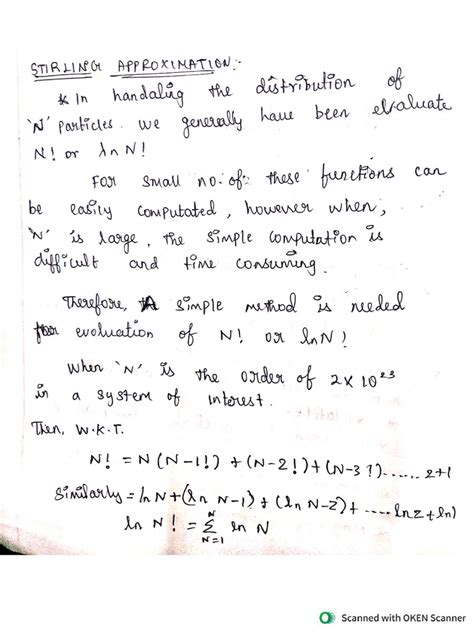 STIRLING APPROXIMATION:-
* In handaling the distribution of
'N' Particles. we generally have been evaluate
N! or ln N!
For small no. of these functions can
be easily computated, however when,
'N' is large, the simple computation is
difficult and time consuming.
Therefore, A simple method is needed
for evoluation of N! or ln N!
When 'N' is the order of 2 x 10²³
in a system of interest.
Then, W.K.T.
N! = N (N-1!) + (N-2!) + (N-3!)...... 2+1
Similarly = ln N + (ln N-1) + (ln N-2) + .... ln 2 + ln 1)
ln N! = N Σ N=1 ln N
Scanned with OKEN Scanner